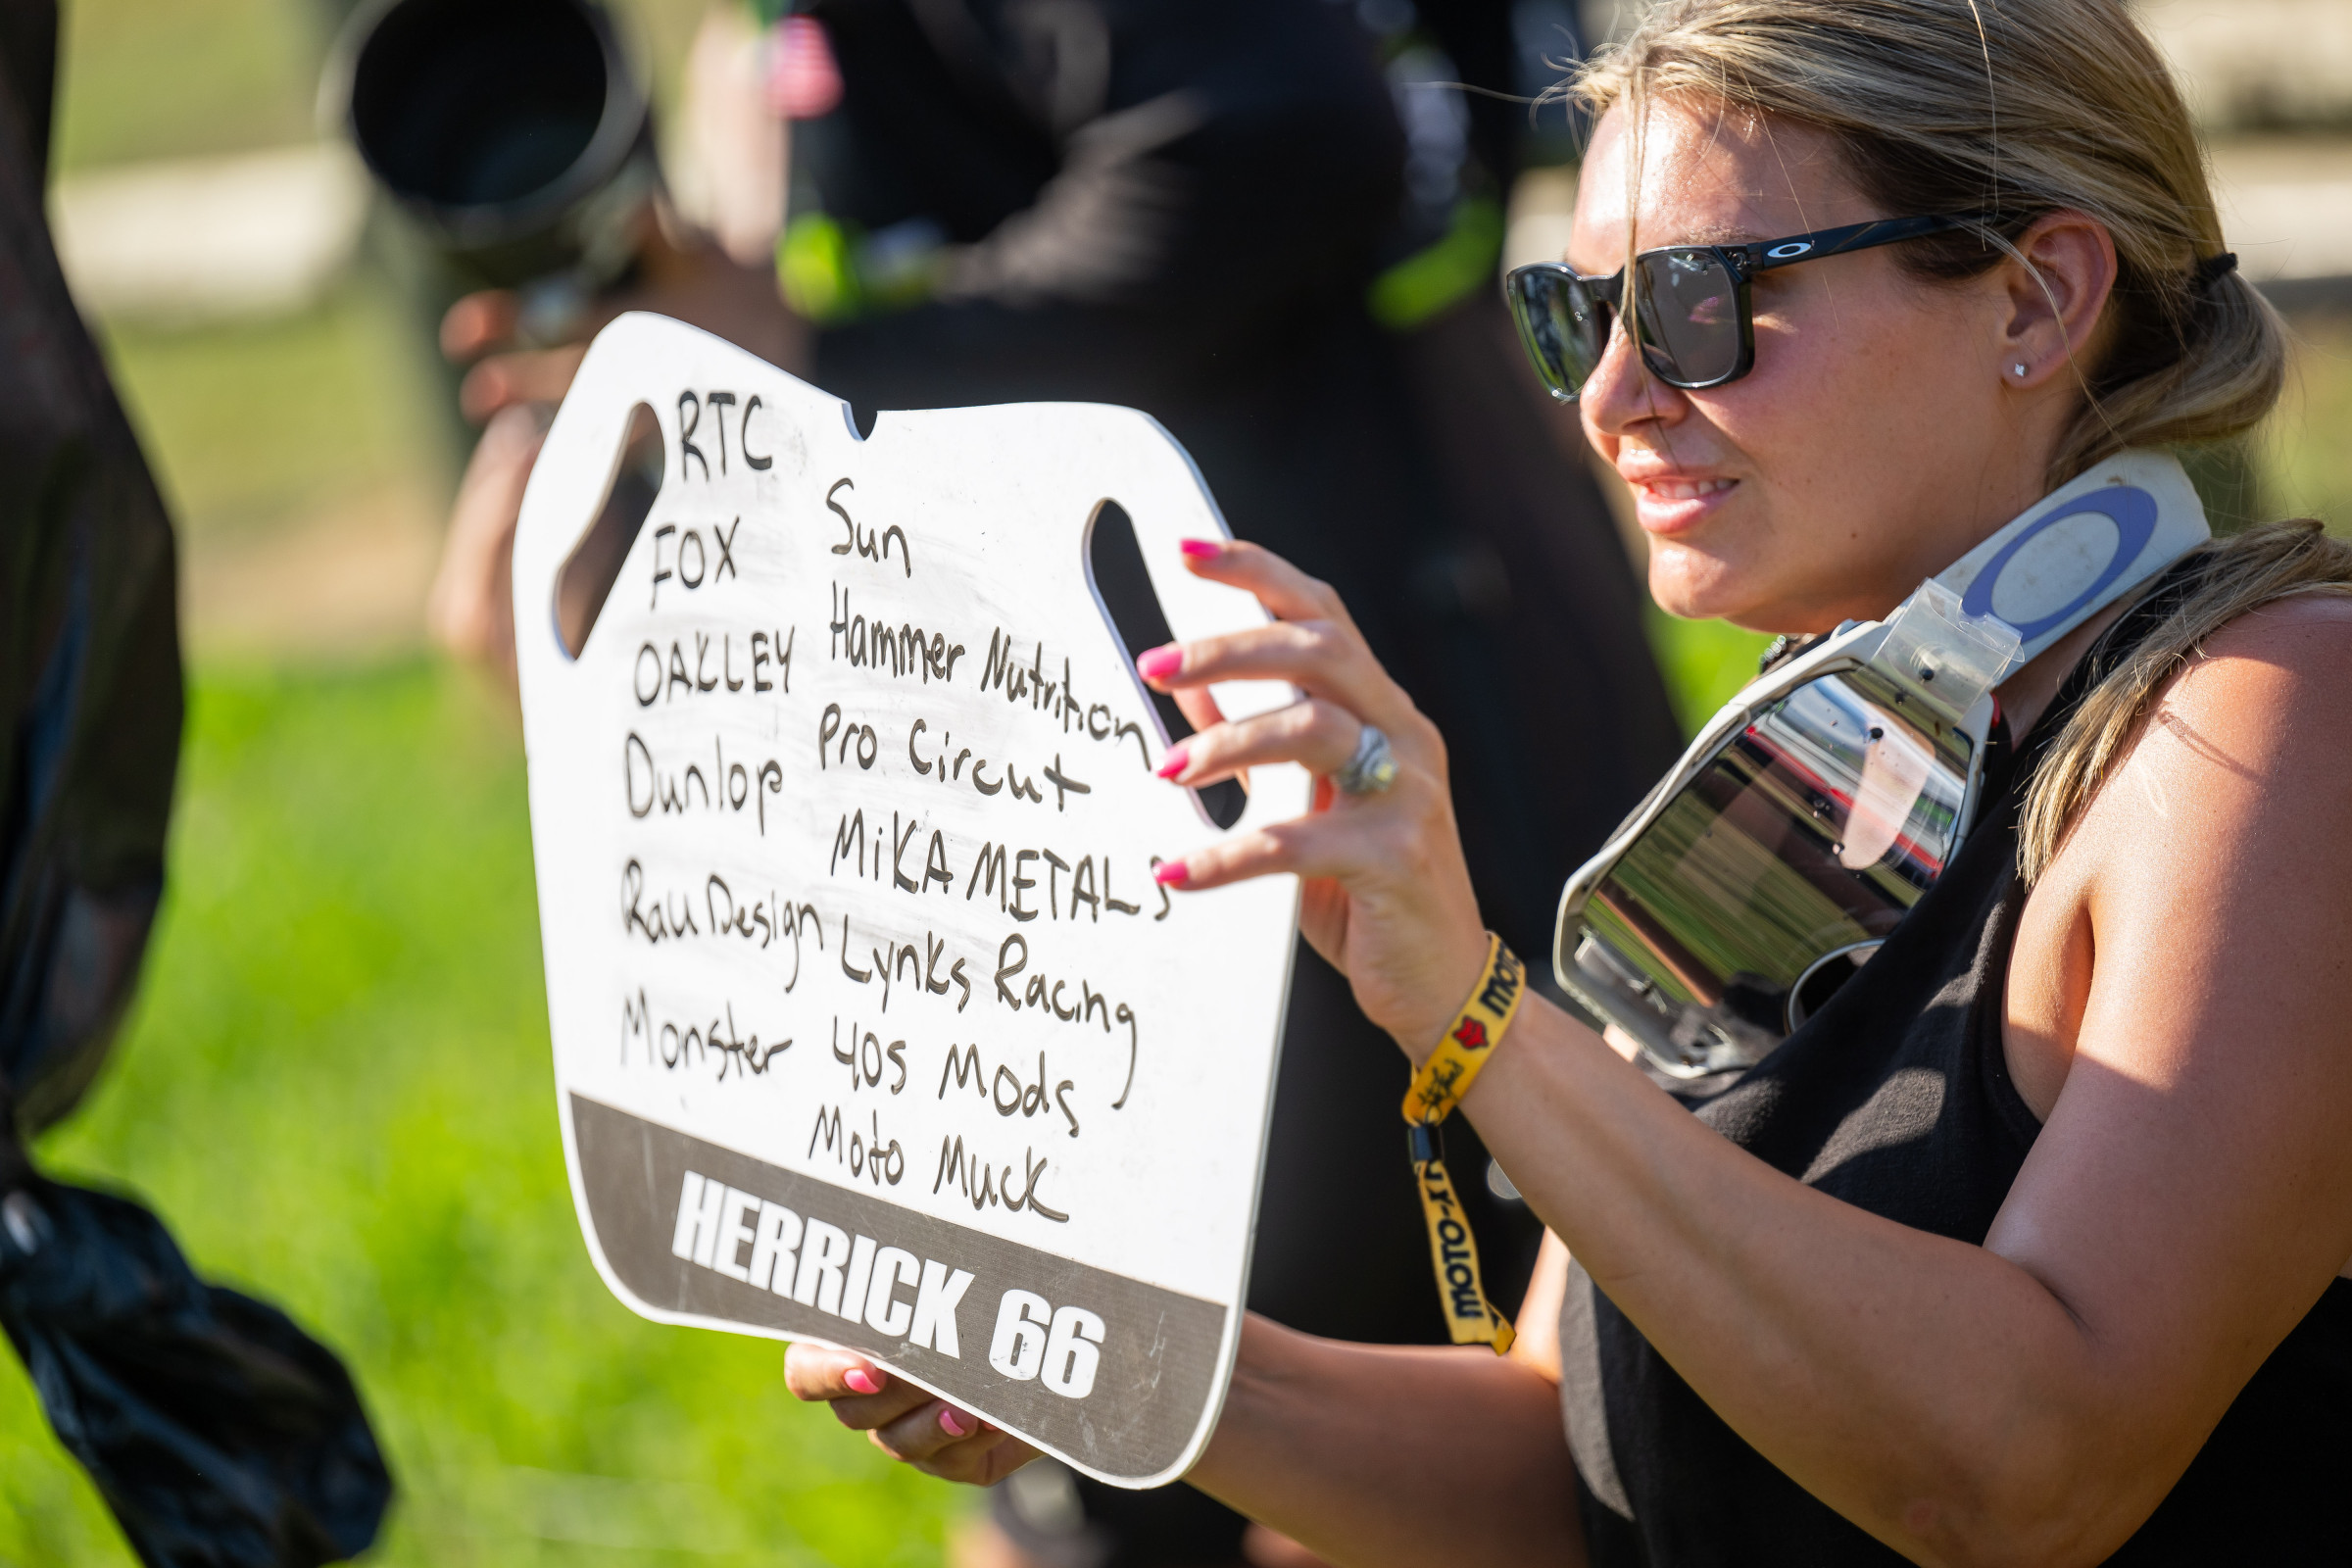 RTC
FOX
OAKLEY
Dunlop
Rau Design
Monster
Sun
Hammer Nutrition
Pro Circut
MiKA METALS
Lynks Racing
40s Mods
Moto Muck
HERRICK 66
MOTO
MOTO-XY